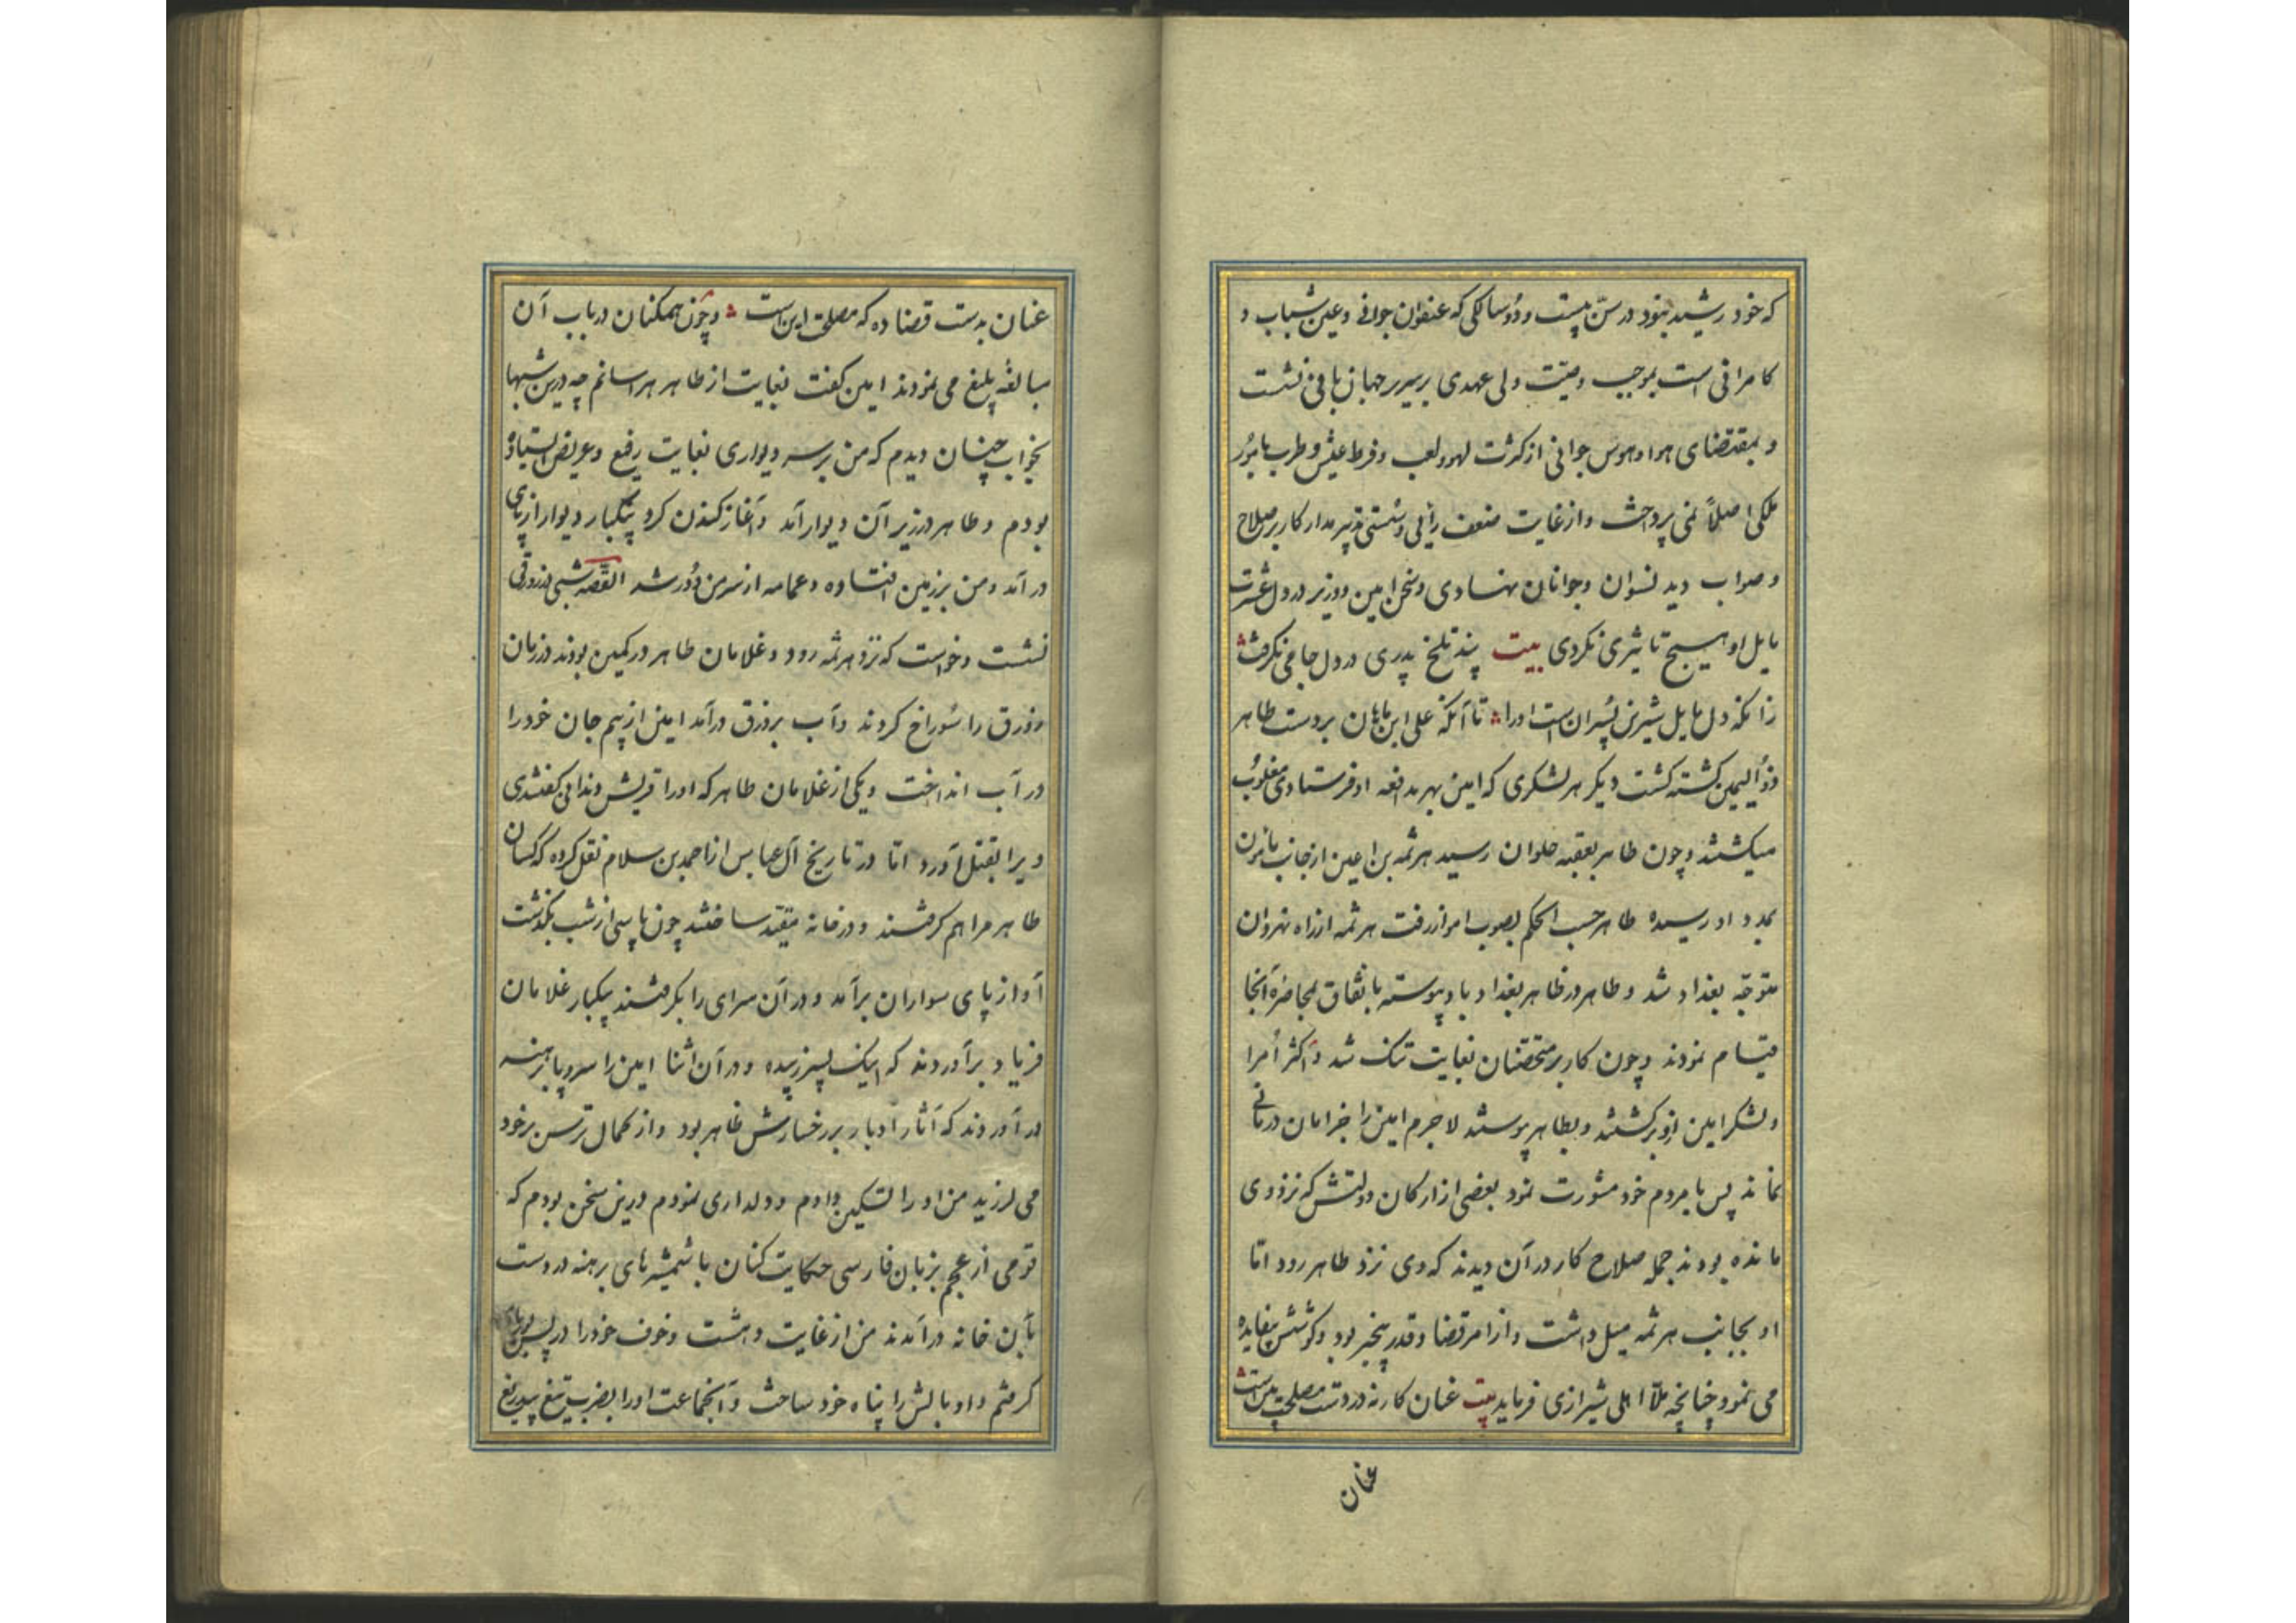 که خود رشید بنود در سنّ بیست و دو سالکی که عنفوان جوانی و عین شباب و
کامرانی است بموجب وصیّت ولی عهدی بر سریر جهان بانی نشست
و بمقتضای هوا و هوس جوانی از کثرت لهو و لعب و فرط عیش و طرب بامور
ملکی اصلاً نمی پرداخت و از غایت ضعف رأیی و سستی تدبیر مدار کار بر صلاح
و صواب دید نسوان و جوانان نهادی و سخن امین و وزیر در دل عشرت
مایل او هیچ تاثیری نکردی بیت پند تلخ پدری در دل جامی نکرفت
زانکه دل مایل شیرین پسران است او را تا آنکه علی ابن ماهان بر دست طاهر
ذو الیمین کشته کشت دیکر هر لشکری که امین بهر مدافعه او فرستادی مغلوب
میکشتند و چون طاهر بعقبه حلوان رسید هرثمه بن اعین از جانب مامون
بمدد او رسیده طاهر حسب الحکم بصوب اهواز رفت هرثمه از راه نهروان
متوجّه بغداد شد و طاهر در ظاهر بغداد باو پیوسته باتفاق بمحاصره آنجا
قیام نمودند و چون کار بر متحصّنان بغایت تنک شد و اکثر امرا
و لشکر امین ازو برکشتند و بطاهر پیوستند لاجرم امین را جز امان درمانی
نماند پس با مردم خود مشورت نمود بعضی از ارکان دولتش که نزد وی
مانده بودند جمله صلاح کار در آن دیدند که وی نزد طاهر رود امّا
او بجانب هرثمه میل داشت و از امر قضا و قدر بیخبر بود و کوشش بیفایده
می نمود چنانچه ملّا اهلی شیرازی فرماید بیت عنان کار نه در دست مصلحت بین است
عنان
عنان بدست قضا ده که مصلحت این است و چون همکنان در باب آن
مبالغه بلیغ می نمودند امین کفت بغایت از طاهر هراسانم چه درین شبها
بخواب چنان دیدم که من بر سر دیواری بغایت رفیع و عریض استاده
بودم و طاهر در زیر آن دیوار آمد و آغاز کندن کرد بیکبار دیوار از پای
در آمد و من بر زمین افتاده و عمامه از سر من دور شد القصّه شبی در زورقی
نشست و خواست که نزد هرثمه رود و غلامان طاهر در کمین بودند در زمان
زورق را سوراخ کردند و آب بزورق درآمد امین از بیم جان خود را
در آب انداخت و یکی از غلامان طاهر که او را قریش دندانی کفتندی
ویرا بقتل آورد امّا در تاریخ آل عباس از احمد بن سلام نقل کرده که کسان
طاهر مرا هم کرفتند و در خانه مقیّد ساختند چون پاسی از شب بکذشت
آواز پای سواران برآمد و در آن سرای را بکرفتند بیکبار غلامان
فریاد برآوردند که اینک پسر زبیده و در آن اثنا امین را سر و پا برهنه
در آوردند که آثار ادبار بر رخسارش ظاهر بود و از کمال ترس برخود
می لرزید من او را تسکین دادم و دلداری نمودم درین سخن بودم که
قومی از عجم بزبان فارسی حکایت کنان با شمشیرهای برهنه در دست
بآن خانه درآمدند من از غایت دهشت و خوف خود را در پس
کرفتم و او بالش را پناه خود ساخت و آنجماعت او را بضرب تیغ بیدریغ